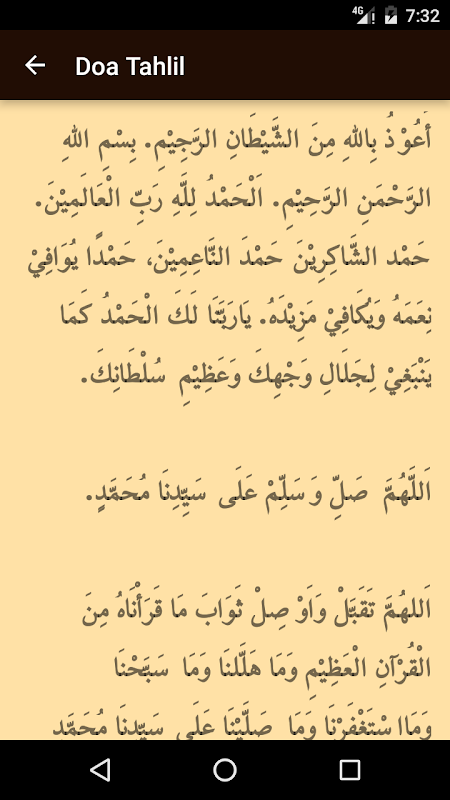 4G 7:32
Doa Tahlil
أَعُوْذُ بِاللهِ مِنَ الشَّيْطَانِ الرَّجِيْمِ. بِسْمِ اللهِ
الرَّحْمَنِ الرَّحِيْمِ. اَلْحَمْدُ لِلَّهِ رَبِّ الْعَالَمِيْنَ.
حَمْد الشَّاكِرِيْنَ حَمْدَ النَّاعِمِيْنَ، حَمْدًا يُوَافِيْ
نِعَمَهُ وَيُكَافِيْ مَزِيْدَهُ. يَارَبَّنَا لَكَ الْحَمْدُ كَمَا
يَنْبَغِيْ لِجَلَالِ وَجْهِكَ وَعَظِيْمِ سُلْطَانِكَ.
اَللَّهُمَّ صَلِّ وَسَلِّمْ عَلَى سَيِّدِنَا مُحَمَّدٍ.
اَللهُمَّ تَقَبَّلْ وَاَوْصِلْ ثَوَابَ مَا قَرَأْنَاهُ مِنَ
الْقُرْآنِ الْعَظِيْمِ وَمَا هَلَّلنَا وَمَا سَبَّحْنَا
وَمَااسْتَغْفَرْنَا وَمَا صَلَّيْنَا عَلَى سَيِّدِنَا مُحَمَّد